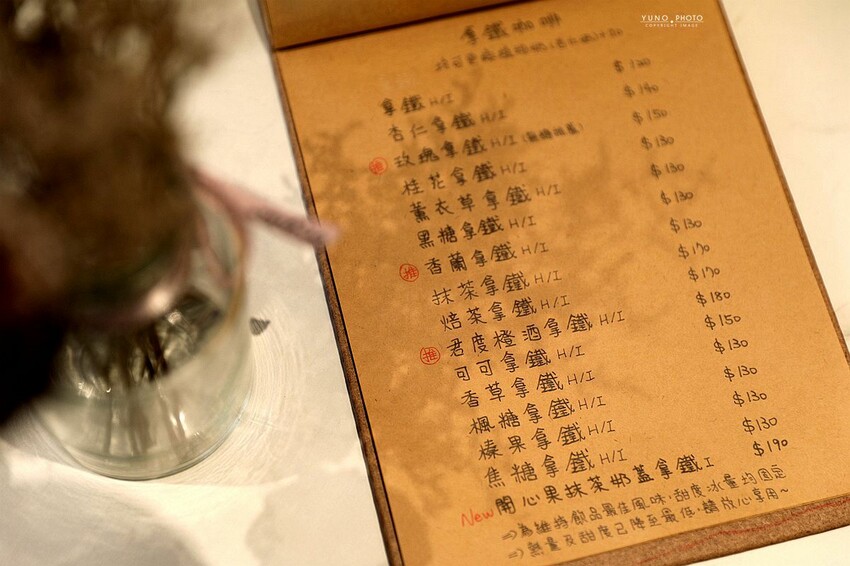 YUNO PHOTO
COPYRIGHT IMAGE
拿鐵咖啡
拿鐵 H/I $120
杏仁拿鐵 H/I $140
推 玫瑰拿鐵 H/I $150
桂花拿鐵 H/I $130
薰衣草拿鐵 H/I $130
黑糖拿鐵 H/I $130
推 香蘭拿鐵 H/I $130
抹茶拿鐵 H/I $170
焙茶拿鐵 H/I $170
推 君度橙酒拿鐵 H/I $180
可可拿鐵 H/I $150
香草拿鐵 H/I $130
楓糖拿鐵 H/I $130
榛果拿鐵 H/I $130
焦糖拿鐵 H/I $130
New 開心果抹茶奶蓋拿鐵 I $190
⇒為維持飲品最佳風味,甜度冰量均固定
⇒熱量及甜度已降至最低,請放心享用~